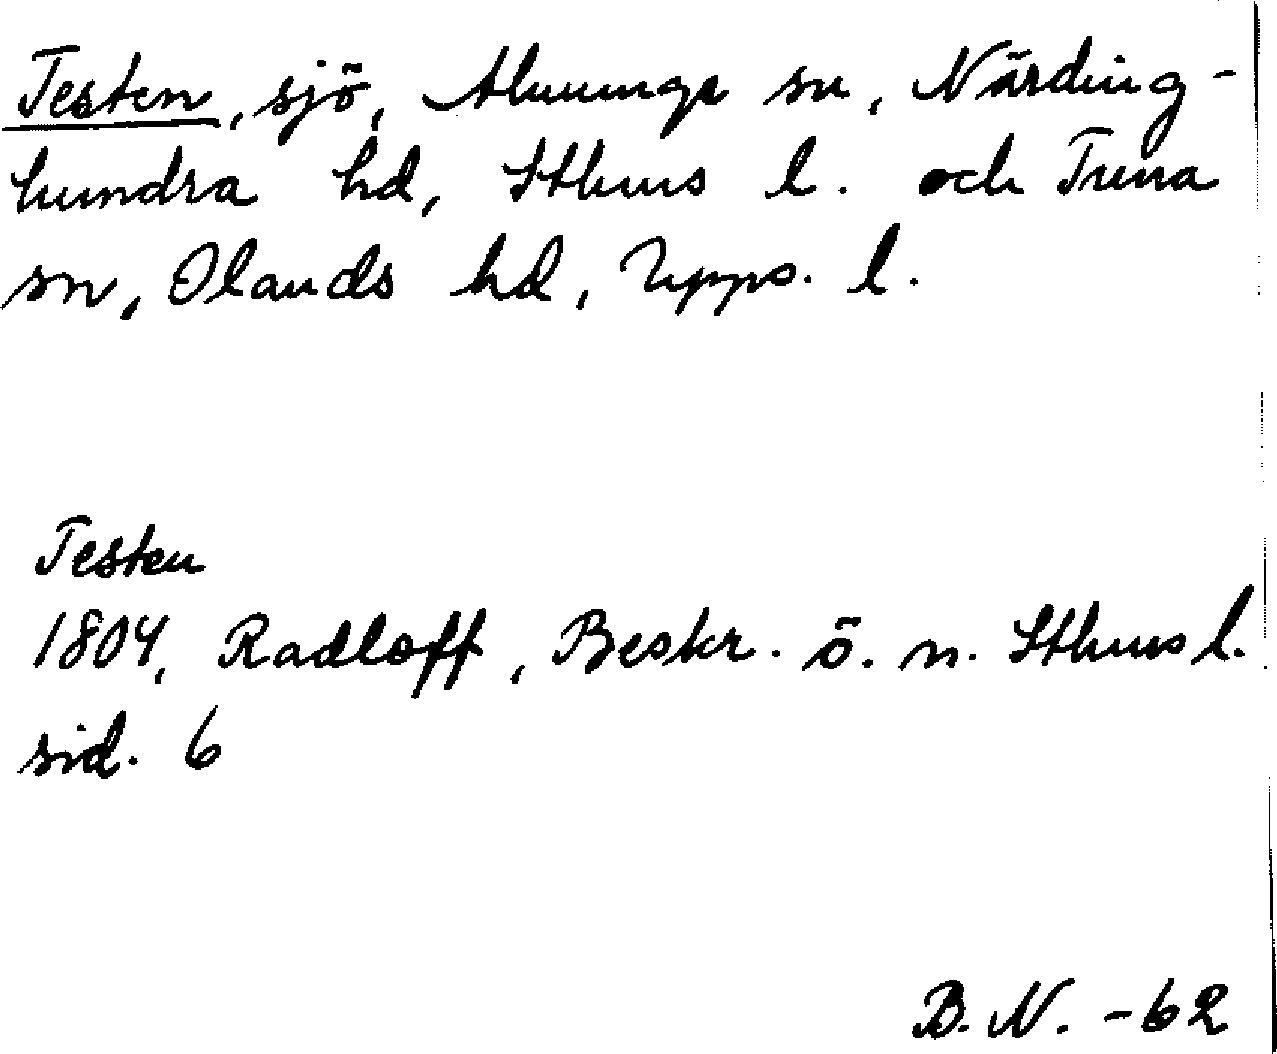 Testen, sjö, Almunge sn, Närding-
hundra hd, Sthms l. och Tuna
sn, Olands hd, Upps. l.
Testen
1804, Radloff, Beskr. ö. n. Sthms l.
sid. 6
B. N. -62